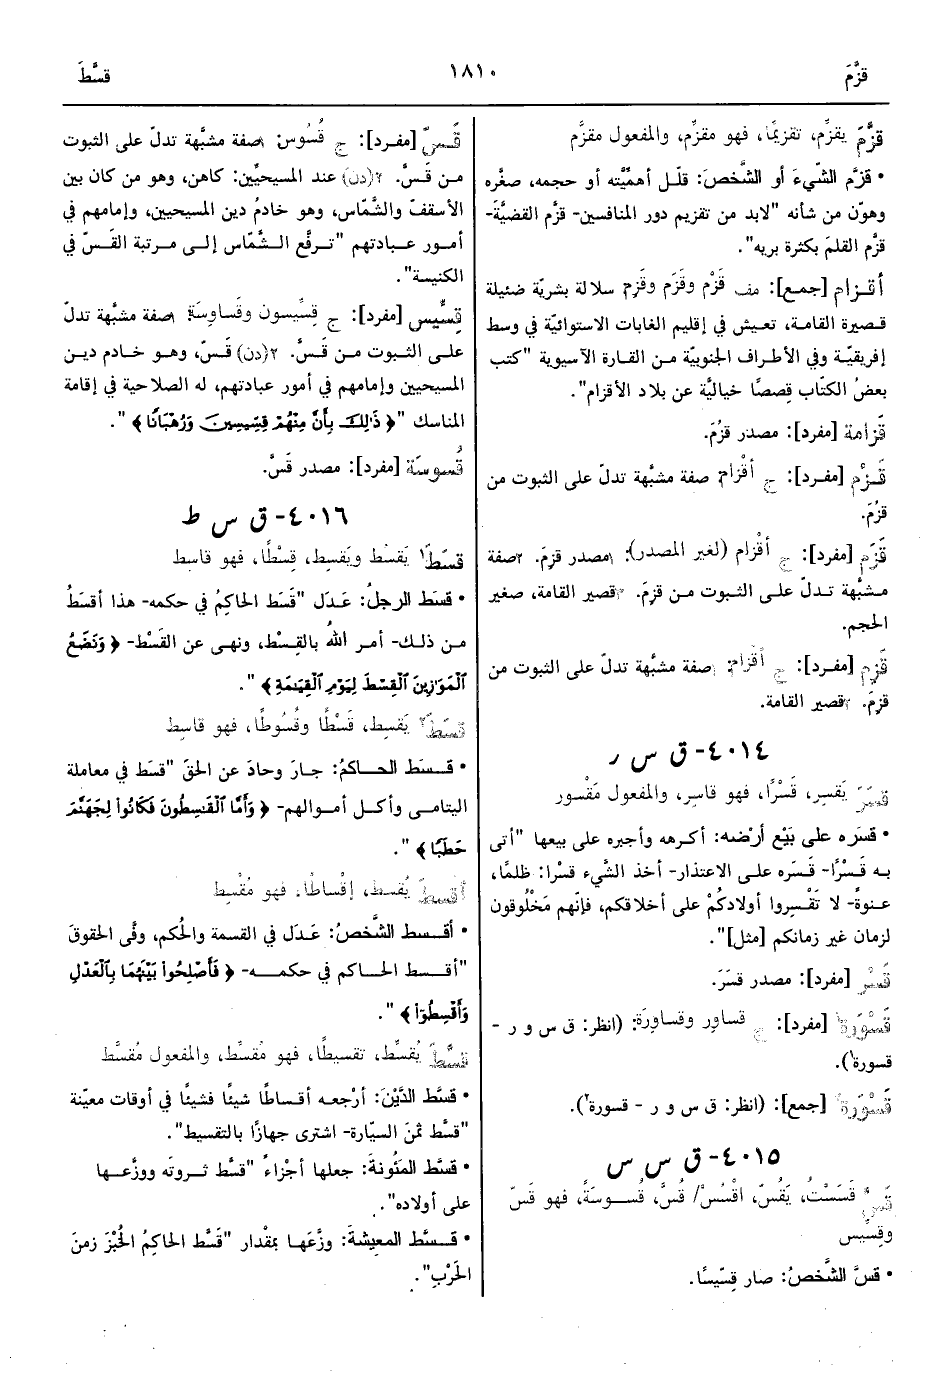 قزَّمَ
١٨١٠
قسَّطَ
قزَّمَ يقزِّم، تقزيمًا، فهو مقزِّم، والمفعول مقزَّم
• قزَّم الشّيءَ أو الشَّخصَ: قلّل أهمّيَّته أو حجمه، صغّره
وهوّن من شأنه "لابد من تقزيم دور المنافسين- قزَّم القضيَّةَ-
قزَّم القلمَ بكثرة بريه".
أقزام [جمع]: مف قَزْم وقَزَم وقَزِم سلالة بشريّة ضئيلة
قصيرة القامة، تعيش في إقليم الغابات الاستوائيّة في وسط
إفريقيّة وفي الأطراف الجنوبيّة من القارة الآسيوية "كتب
بعضُ الكتّاب قِصصًا خياليَّة عن بلاد الأقزام".
قَزامة [مفرد]: مصدر قزُمَ.
قَزْم [مفرد]: ج أقْزام صفة مشبَّهة تدلّ على الثبوت من
قزُمَ.
قَزَم [مفرد]: ج أقْزام (لغير المصدر): ١مصدر قزِمَ. ٢صفة
مشبَّهة تدلّ على الثبوت من قزِمَ. ٣قصير القامة، صغير
الحجم.
قَزِم [مفرد]: ج أقزام: ١صفة مشبَّهة تدلّ على الثبوت من
قزِمَ. ٢قصير القامة.
٤٠١٤- ق س ر
قسَرَ يَقسِر، قَسْرًا، فهو قاسِر، والمفعول مَقْسور
• قسَره على بَيْع أرْضه: أكرهه وأجبره على بيعها "أتى
به قَسْرًا- قسَره على الاعتذار- أخذ الشَّيء قسْرا: ظلمًا،
عنوةً- لا تَقْسِروا أولادكُمْ على أخلاقكم، فإنّهم مَخْلُوقون
لزمان غير زمانكم [مثل]".
قَسْر [مفرد]: مصدر قسَرَ.
قَسْوَرَة١ [مفرد]: ج قساوِر وقساورَة: (انظر: ق س و ر -
قسورة١).
قَسْوَرَة٢ [جمع]: (انظر: ق س و ر - قسورة٢).
٤٠١٥- ق س س
قَسَّ قَسَسْتُ، يَقُسّ، اقْسُسْ/ قُسَّ، قُسوسَةً، فهو قَسّ
وقِسيس
• قسَّ الشَّخصُ: صار قِسّيسًا.
قَسّ [مفرد]: ج قُسُوس: ١صفة مشبَّهة تدلّ على الثبوت
من قَسَّ. ٢(دن) عند المسيحيِّين: كاهن، وهو من كان بين
الأسقف والشَّماس، وهو خادمُ دين المسيحيين، وإمامهم في
أمور عبادتهم "ترفَّع الشَّماس إلى مرتبة القَسّ في
الكنيسة".
قِسِّيس [مفرد]: ج قِسِّيسون وقَساوِسَة: ١صفة مشبَّهة تدلّ
على الثبوت من قَسَّ. ٢(دن) قَسّ، وهو خادم دين
المسيحيين وإمامهم في أمور عبادتهم، له الصلاحية في إقامة
المناسك "﴿ ذَٰلِكَ بِأَنَّ مِنْهُمْ قِسِّيسِينَ وَرُهْبَانًا ﴾ ".
قُسُوسَة [مفرد]: مصدر قَسَّ.
٤٠١٦- ق س ط
قسَطَ١ يَقسُط ويَقسِط، قِسْطًا، فهو قاسِط
• قسَط الرجلُ: عَدَل "قَسَط الحاكِمُ في حكمه- هذا أقسَطُ
من ذلك- أمر اللهُ بالقِسْط، ونهى عن القَسْط- ﴿ وَنَضَعُ
ٱلْمَوَازِينَ ٱلْقِسْطَ لِيَوْمِ ٱلْقِيَٰمَةِ ﴾ ".
قسَطَ٢ يَقسِط، قَسْطًا وقُسُوطًا، فهو قاسِط
• قسَط الحاكمُ: جارَ وحادَ عن الحقّ "قسَط في معاملة
اليتامى وأكل أموالهم- ﴿ وَأَمَّا ٱلْقَٰسِطُونَ فَكَانُوا۟ لِجَهَنَّمَ
حَطَبًا ﴾ ".
أقسطَ يُقسط، إقْساطًا، فهو مُقْسِط
• أقسط الشَّخصُ: عَدَل في القسمة والحُكم، وفَّى الحقوقَ
"أقسط الحاكم في حكمه- ﴿ فَأَصْلِحُوا۟ بَيْنَهُمَا بِٱلْعَدْلِ
وَأَقْسِطُوٓا۟ ﴾ ".
قسَّطَ يُقسِّط، تقسيطًا، فهو مُقسِّط، والمفعول مُقسَّط
• قسَّط الدَّيْنَ: أرْجعه أقساطًا شيئًا فشيئًا في أوقات معيّنة
"قسَّط ثمنَ السيّارة- اشترى جهازًا بالتقسيط".
• قسَّط المَئُونةَ: جعلها أجْزاءً "قسَّط ثروتَه ووزَّعها
على أولاده".
• قسَّط المعيشةَ: وزَّعَها بمقْدار "قَسَّط الحاكِمُ الخُبْزَ زمنَ
الحَرْبِ".